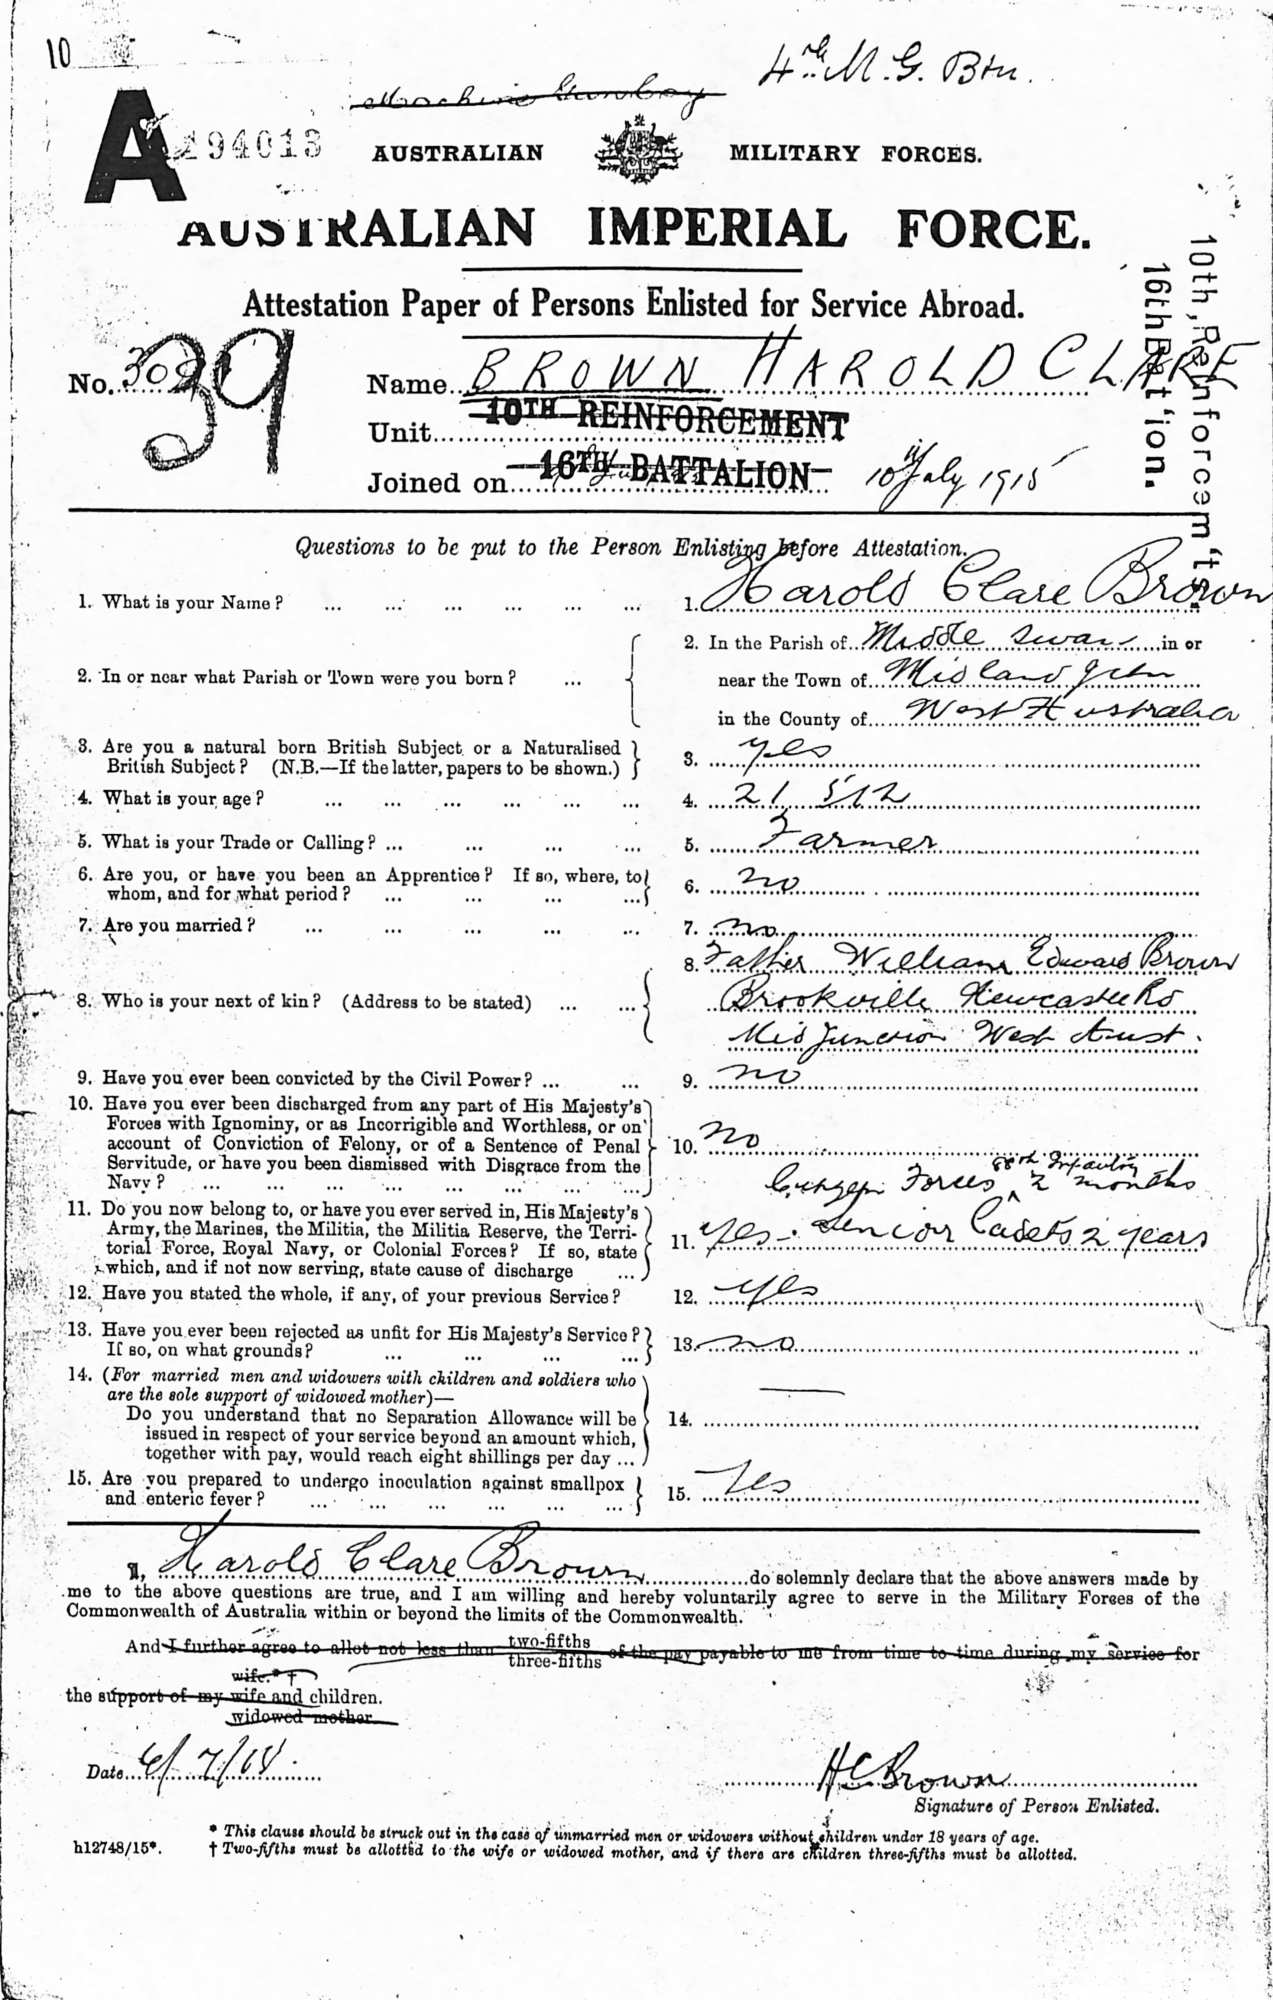 10
4th M. G. Btn.
Machine Gun Coy
A 194013
AUSTRALIAN MILITARY FORCES.
AUSTRALIAN IMPERIAL FORCE.
10th, Reinforcem'ts.
16th Batt'ion.
Attestation Paper of Persons Enlisted for Service Abroad.
No. 39 Name BROWN HAROLD CLARE
Unit 10TH REINFORCEMENT
16TH BATTALION
Joined on 10 July 1915
Questions to be put to the Person Enlisting before Attestation.
1. What is your Name? ... ... ... ... ... ... 1. Harold Clare Brown
2. In or near what Parish or Town were you born? ... 2. In the Parish of Middle Swan in or
near the Town of Midland Jctn
in the County of West Australia
3. Are you a natural born British Subject or a Naturalised
British Subject? (N.B.—If the latter, papers to be shown.) 3. yes
4. What is your age? ... ... ... ... ... ... 4. 21 5/12
5. What is your Trade or Calling? ... ... ... ... 5. Farmer
6. Are you, or have you been an Apprentice? If so, where, to
whom, and for what period? ... ... ... ... 6. no
7. Are you married? ... ... ... ... ... 7. no
8. Who is your next of kin? (Address to be stated) ... ... 8. Father William Edward Brown
Brookville Newcastle Rd
Mid Junction West Aust.
9. Have you ever been convicted by the Civil Power? ... ... 9. no
10. Have you ever been discharged from any part of His Majesty's
Forces with Ignominy, or as Incorrigible and Worthless, or on
account of Conviction of Felony, or of a Sentence of Penal
Servitude, or have you been dismissed with Disgrace from the
Navy? ... ... ... ... ... ... ... ... 10. no
88th Infantry
Citizen Forces ^ 2 months
11. Do you now belong to, or have you ever served in, His Majesty's
Army, the Marines, the Militia, the Militia Reserve, the Terri-
torial Force, Royal Navy, or Colonial Forces? If so, state
which, and if not now serving, state cause of discharge ... 11. Yes - Senior Cadets 2 years
12. Have you stated the whole, if any, of your previous Service? 12. yes
13. Have you ever been rejected as unfit for His Majesty's Service?
If so, on what grounds? ... ... ... ... 13. no
14. (For married men and widowers with children and soldiers who
are the sole support of widowed mother)—
Do you understand that no Separation Allowance will be
issued in respect of your service beyond an amount which,
together with pay, would reach eight shillings per day ... 14. —
15. Are you prepared to undergo inoculation against smallpox
and enteric fever? ... ... ... ... ... ... 15. Yes
I, Harold Clare Brown do solemnly declare that the above answers made by
me to the above questions are true, and I am willing and hereby voluntarily agree to serve in the Military Forces of the
Commonwealth of Australia within or beyond the limits of the Commonwealth.
And I further agree to allot not less than two-fifths of the pay payable to me from time to time during my service for
three-fifths
wife.* †
the support of my wife and children.
widowed mother
Date 6/7/15. H C Brown
Signature of Person Enlisted.
* This clause should be struck out in the case of unmarried men or widowers without children under 18 years of age.
h12748/15*. † Two-fifths must be allotted to the wife or widowed mother, and if there are children three-fifths must be allotted.